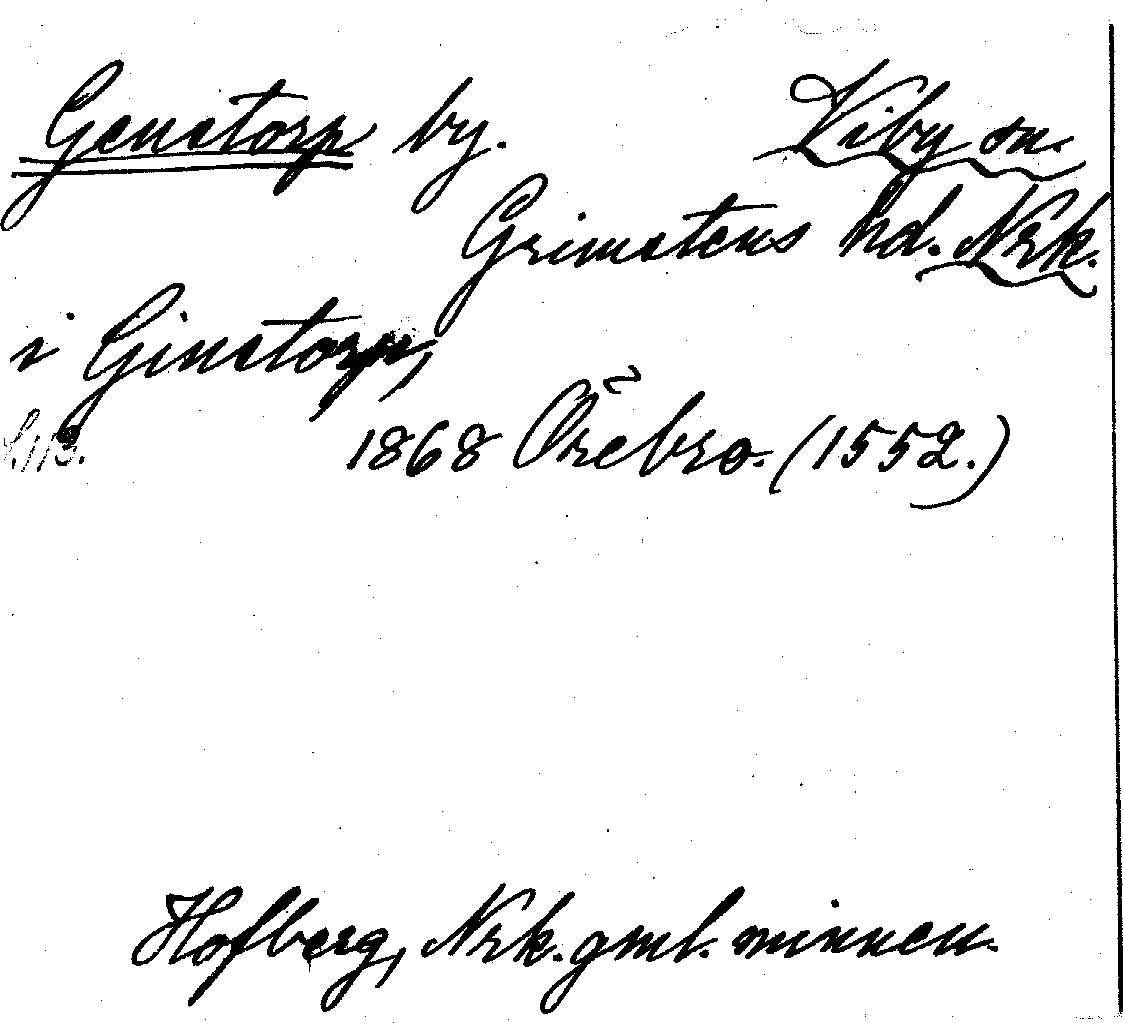 Genstorp by. Viby sn.
Grimstens hd. Nrk.
i Ginstorp,
S. 113. 1868 Örebro. (1552.)
Hofberg, Nrk. gml. minnen.